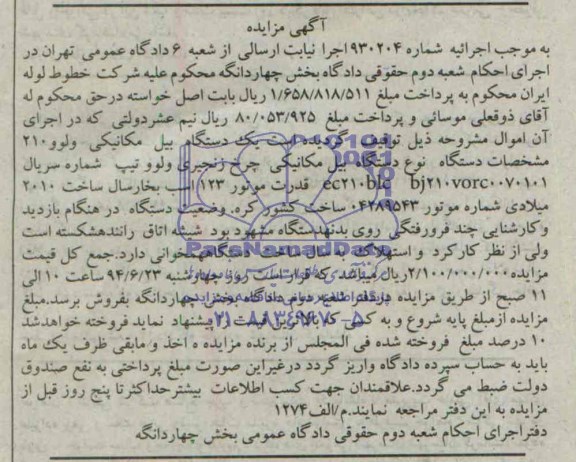 آگهی مزایده
به موجب اجرائیه شماره ۹۳۰۲۰۴ اجرا نیابت ارسالی از شعبه ۶ دادگاه عمومی تهران در
اجرای احکام شعبه دوم حقوقی دادگاه بخش چهاردانگه محکوم علیه شرکت خطوط لوله
ایران محکوم به پرداخت مبلغ ۱/۶۵۸/۸۱۸/۵۱۱ ریال بابت اصل خواسته درحق محکوم له
آقای ذوقعلی موسائی و پرداخت مبلغ ۸۰/۰۵۳/۹۲۵ ریال نیم عشردولتی که در اجرای
آن اموال مشروحه ذیل توقیف گردیده است یک دستگاه بیل مکانیکی ولوو۲۱۰
مشخصات دستگاه نوع دستگاه بیل مکانیکی چرخ زنجیری ولوو تیپ شماره سریال
ec۲۱۰blc bj۲۱۰vorc۰۰۷۰۱۰۱ قدرت موتور ۱۲۳ اسب بخارسال ساخت ۲۰۱۰
میلادی شماره موتور ۰۴۲۸۹۵۴۳ ساخت کشور کره. وضعیت دستگاه در هنگام بازدید
و کارشنایی چند فرورفتگی روی بدنهدستگاه مشهود بود شیشه اتاق رانندهشکسته است
ولی از نظر کارکرد و استهلاک به سال ساخت دستگاههمخوانی دارد.جمع کل قیمت
مزایده ۲/۱۰۰/۰۰۰/۰۰۰ریال میباشد که قرار است روز چهارشنبه ۹۴/۶/۲۳ ساعت ۱۰ الی
۱۱ صبح از طریق مزایده دردفتر شعبه دوم دادگاه بخش چهاردانگه بفروش برسد.مبلغ
مزایده ازمبلغ پایه شروع و به کسی که بالاترین قیمت را پیشنهاد نماید فروخته خواهدشد
۱۰ درصد مبلغ فروخته شده فی المجلس از برنده مزایده ه اخذ و مابقی ظرف یک ماه
باید به حساب سپرده دادگاه واریز گردد درغیراین صورت مبلغ پرداختی به نفع صندوق
دولت ضبط می گردد.علاقمندان جهت کسب اطلاعات بیشترحداکثرتا پنج روز قبل از
مزایده به این دفتر مراجعه نمایند.م/الف۱۲۷۴
دفتراجرای احکام شعبه دوم حقوقی دادگاه عمومی بخش چهاردانگه
ParsNamadData
۰۲۱-۸۸۳۴۹۶۷۰-۵